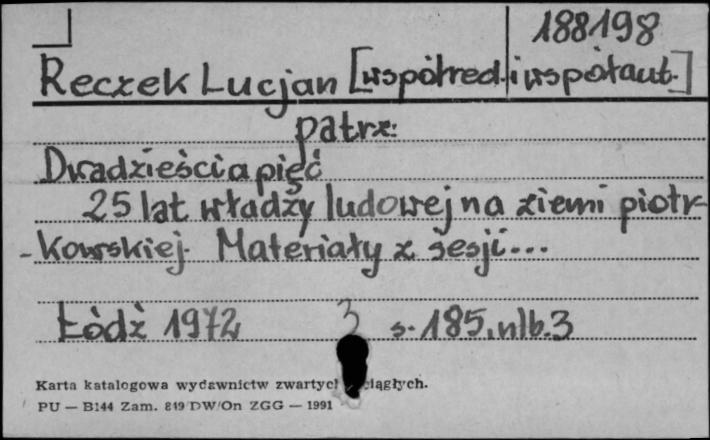 188198
Reczek Lucjan [współred. i współaut.]
patrz:
Dwadzieścia pięć
25 lat władzy ludowej na ziemi piotr-
-kowskiej. Materiały z sesji...
Łódź 1972 3 s. 185, nlb. 3
Karta katalogowa wydawnictw zwartych ciągłych.
PU — B144 Zam. 819 DW/On ZGG — 1991